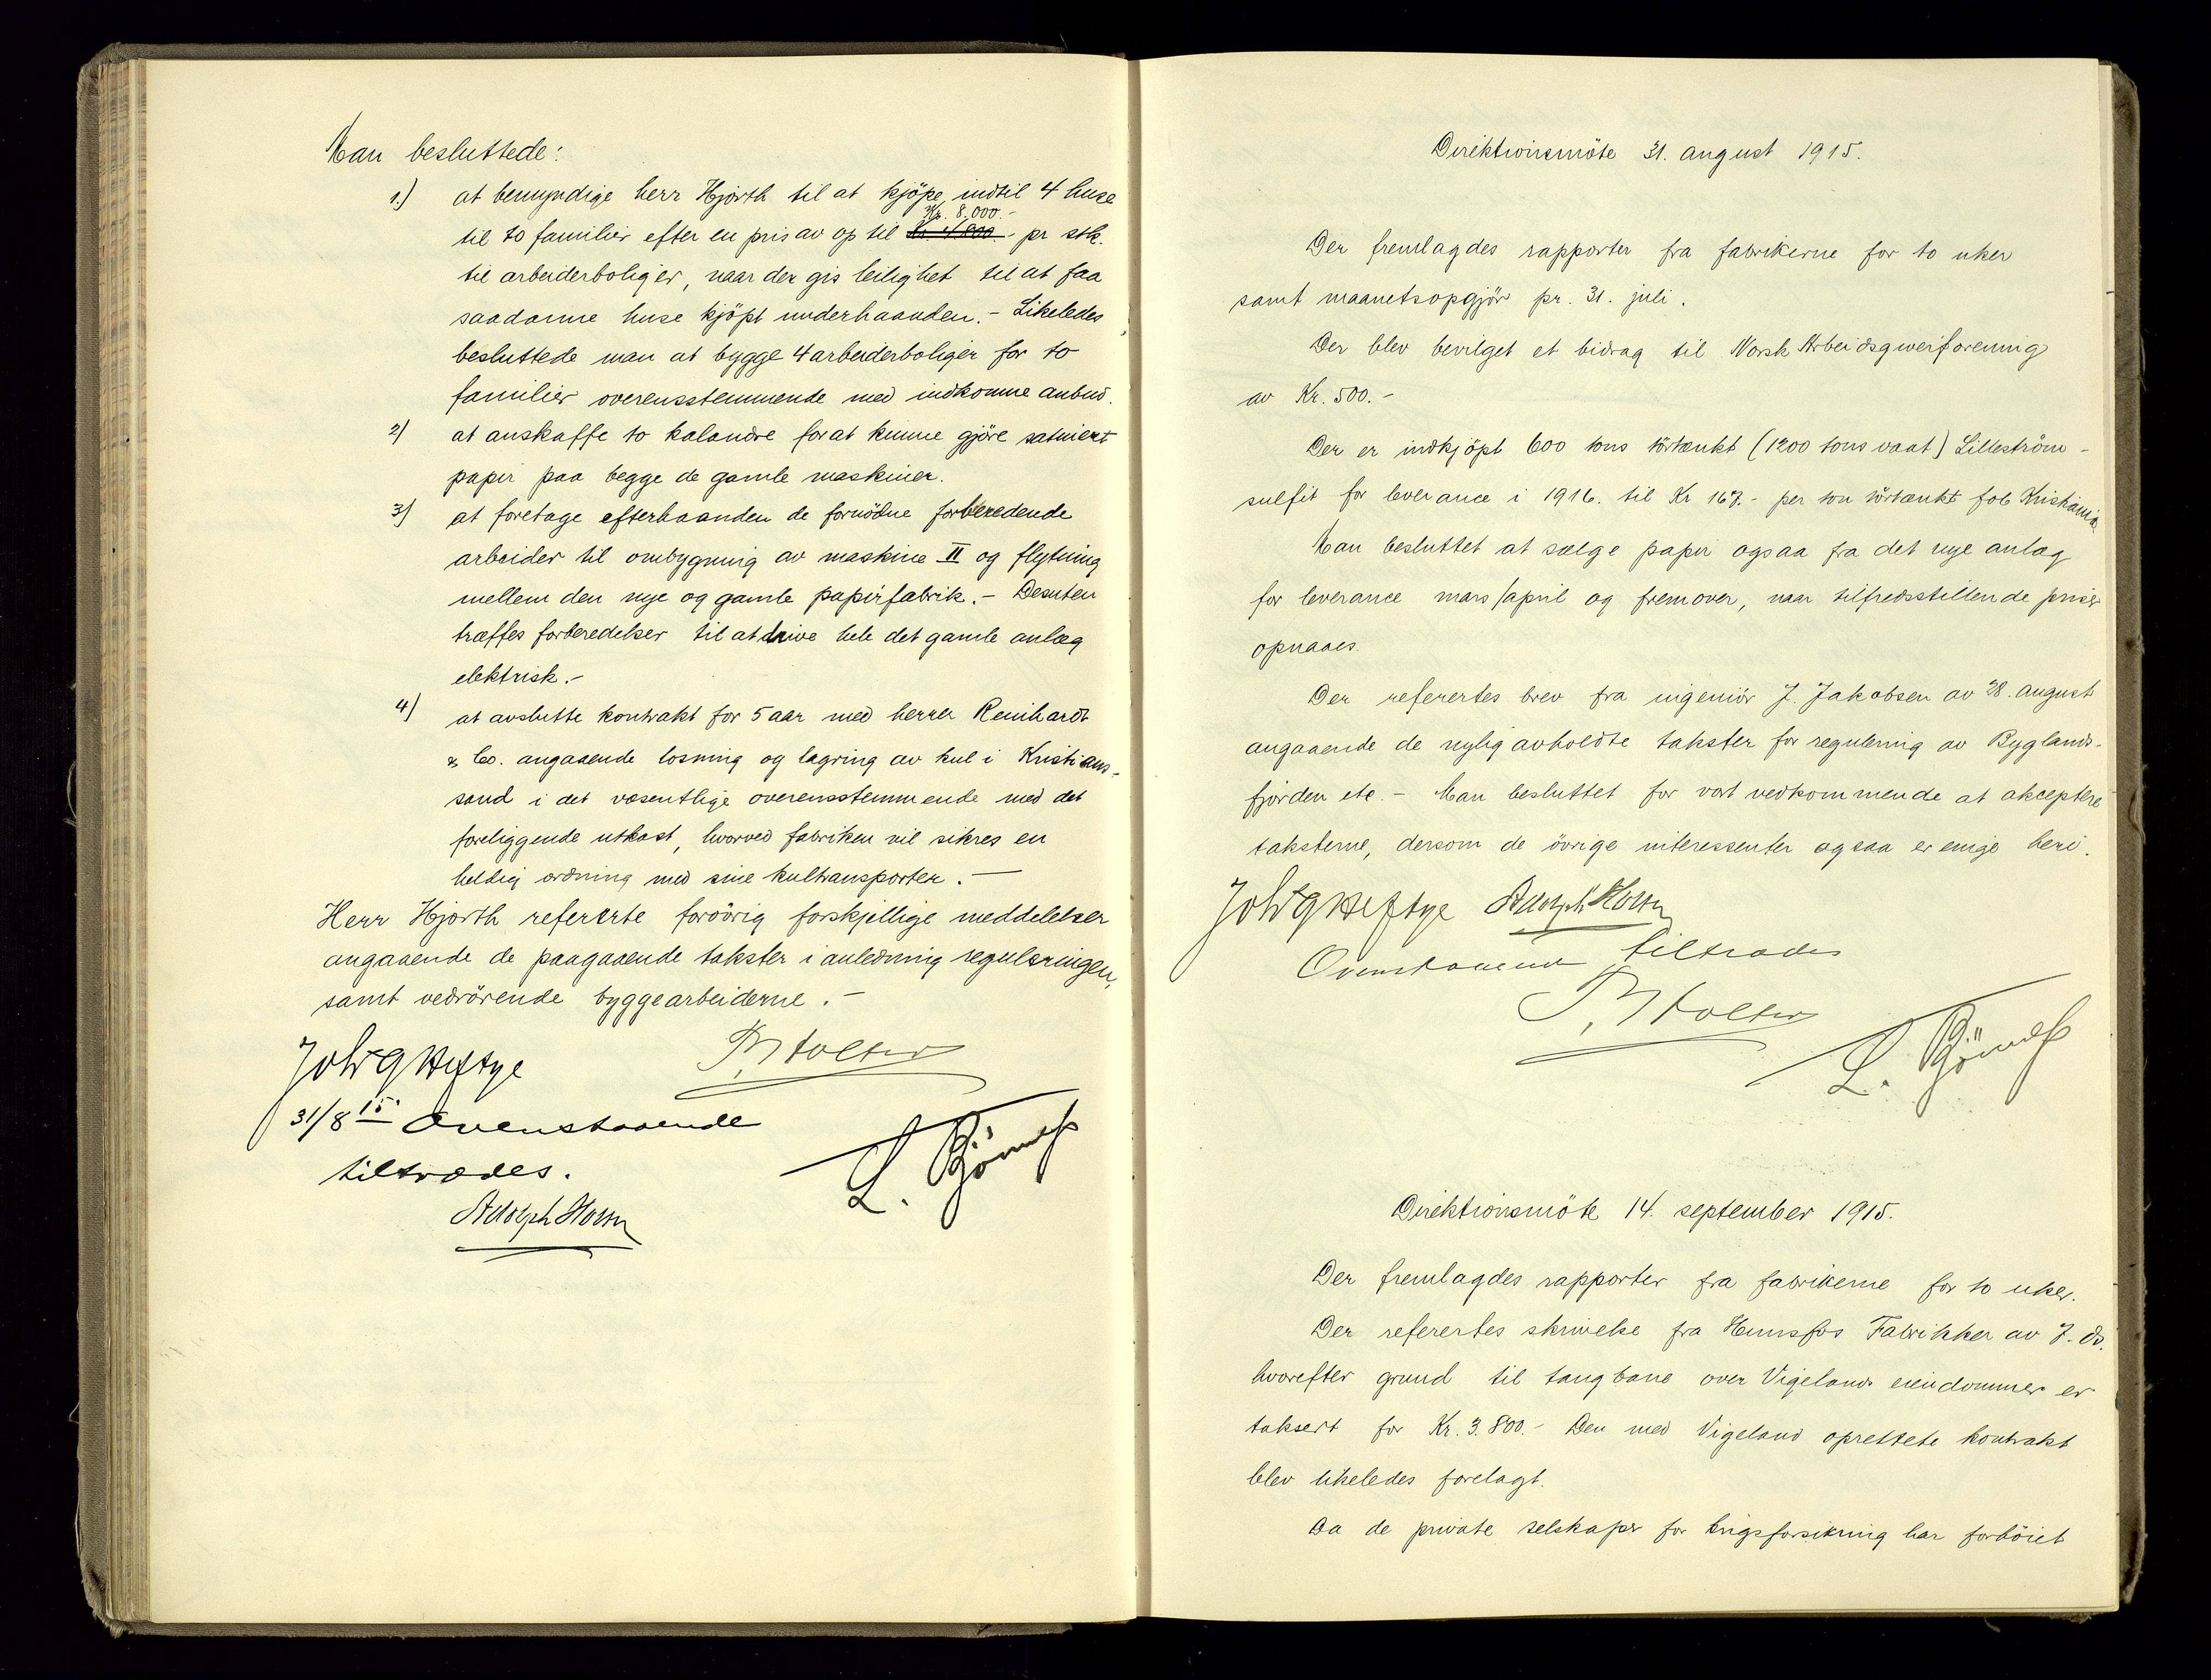 Man besluttede:
1.) at bemyndige herr Hjorth til at kjöpe indtil 4 huse
Kr. 8.000.-
til to familier efter en pris av op til Kr. 4.000.- pr stk.
til arbeiderboliger, naar der gis leilighet til at faa
saadanne huse kjöpt underhaanden.- Likeledes
besluttede man at bygge 4 arbeiderboliger for to
familier overensstemmende med indkomne anbud.
2) at anskaffe to kalandre forat kunne gjöre satinert
papir paa begge de gamle maskiner.
3) at foretage efterhaanden de fornödne forberedende
arbeider til ombygning av maskine II og flytning
mellem den nye og gamle papirfabrik.- Desuten
træffes forberedelser til at drive hele det gamle anlæg
elektrisk.-
4) at avslutte kontrakt for 5 aar med herrer Reinhardt
& Co. angaaende losning og lagring av kul i Kristians-
sand i det væsentlige overensstemmende med det
foreliggende utkast, hvorved fabriken vil sikres en
heldig ordning med sine kultransporter.-
Herr Hjorth refererte forövrig forskjellige meddelelser
angaaende de paagaaende takster i anledning reguleringen,
samt vedrörende byggearbeiderne.-
Joh G Heftye P. M Holter
31/8 15. Ovenstaaende
tiltrædes. L. Bönneß
Adolph Horn
Direktionsmöte 31. august 1915.
Der fremlagdes rapporter fra fabrikerne for to uker
samt maanetsopgjör pr. 31. juli.
Der blev bevilget et bidrag til Norsk Arbeidsgiverforening
av Kr. 500.-
Der er indkjöpt 600 tons törtænkt (1200 tons vaat) Lilleström-
sulfit for leverance i 1916. til Kr 167.- per ton törtænkt fob Kristiania
Man besluttet at sælge papir ogsaa fra det nye anlæg
for leverance mars/april og fremover, naar tilfredsstillende priser
opnaaes.
Der refertes brev fra ingeniör J. Jakobsen av 28. august
angaaende de nylig avholdte takster for regulering av Byglands-
fjorden etc.- Man besluttet for vort vedkommende at akceptere
taksterne, dersom de övrige interessenter ogsaa er enige heri.
Joh G Heftye Adolph Horn
Ovenstaaende tiltrædes
P. M Holter
L. Bönneß
Direktionsmöte 14. september 1915.
Der fremlagdes rapporter fra fabrikerne for to uker.
Der refertes skrivelse fra Hunsfos Fabrikker av 7. ds.
hvorefter grund til taugbane over Vigelands eiendommer er
taksert for Kr. 3.800.- Den med Vigeland oprettete kontrakt
blev likeledes forelagt.
Da de private selskaper for krigsforsikring har forhöiet